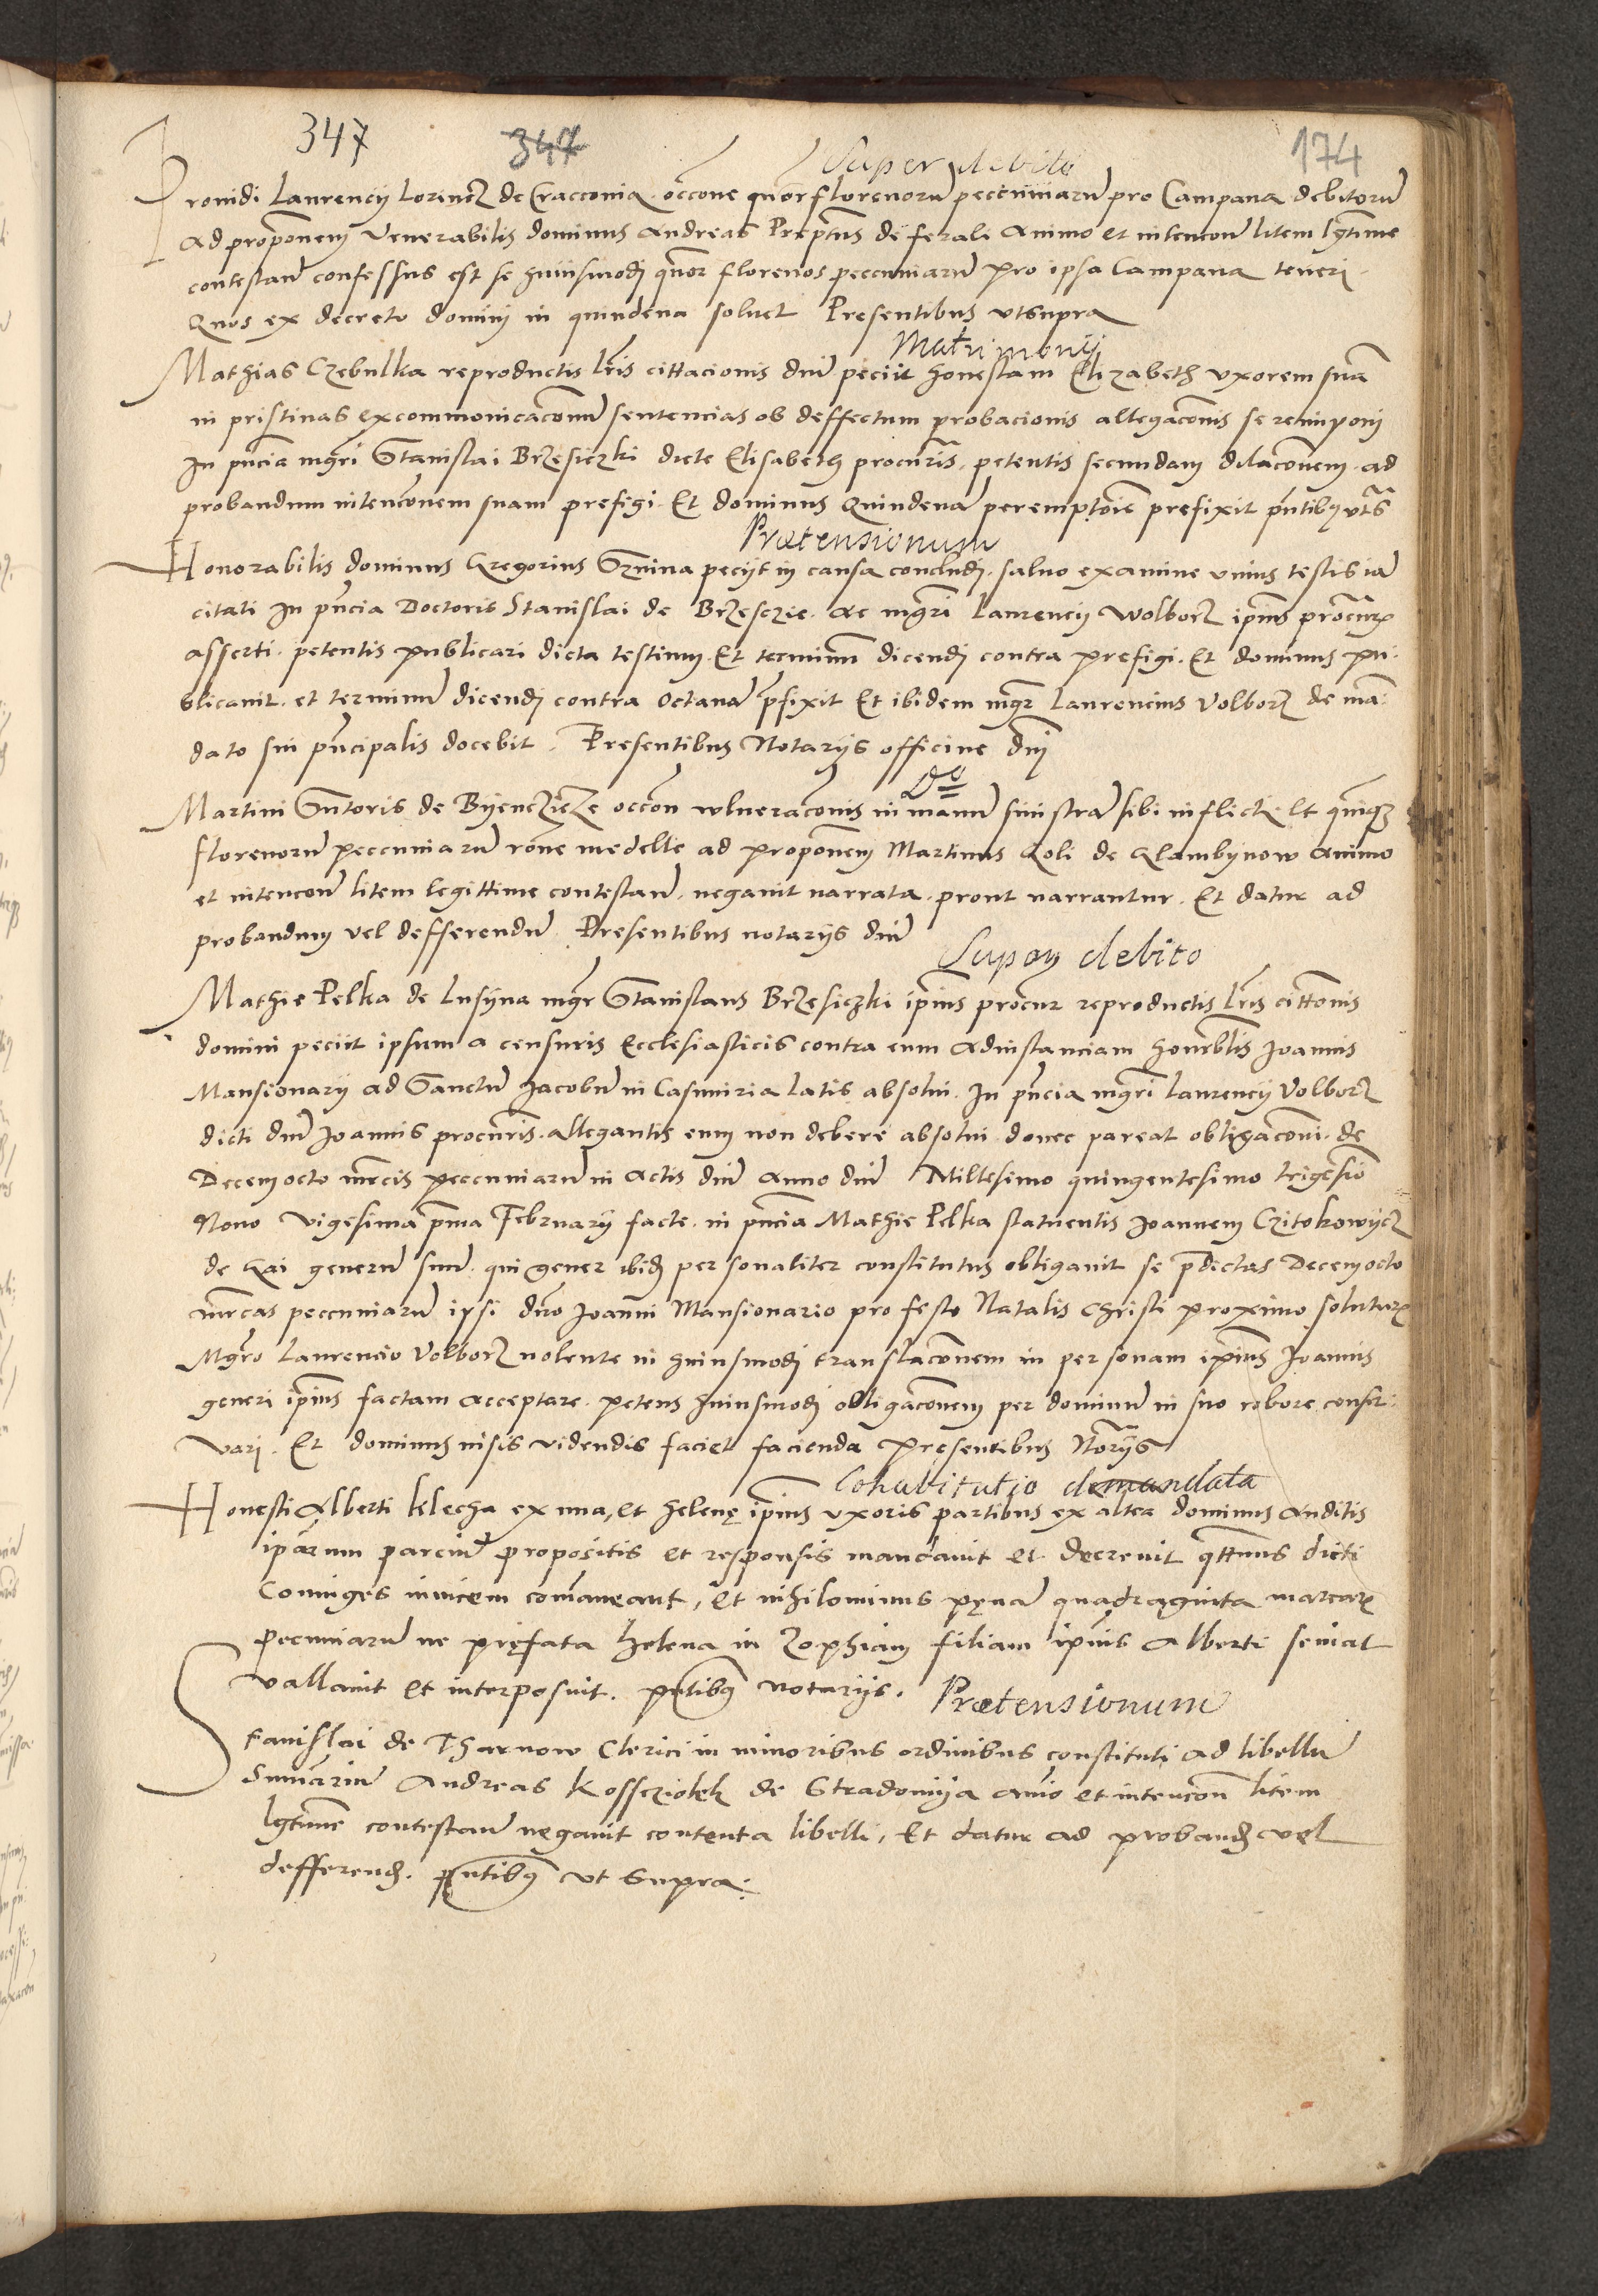 347 347 174
Super debito
Prouidi Laurencij Lorincz de Cracconia occone quor florenorum peccuniarum pro Campana debitorum
Ad proponem Venerabilis dominus Andreas Preptus de ferali Animo et intencone litem lgtime
contestan confessus est se huiusmodj quor florenos peccuniarum pro ipsa Campana teneri
Quos ex decreto dominj in quindena soluet Presentibus vtsupra
Matrimonij
Mathias Czebulka reproductis lris cittacionis dni peciit honestam Elizabeth vxorem suam
in pristinas excommonicacionum sentencias ob deffectum probacionis allegaconis se reimponj
In pncia mgri Stanislai Brzesiczki dicte Elisabeth procuris petentis secundam dilaconem ad
probandum intenconem suam prefigi Et dominus Quindena peremptorie prefixit pntibus vts
Prætensionum
Honorabilis dominus Gregorius peciit in causa concludj saluo examine vnius testis iam
citati In pncia Doctoris Stanislai de Brzesczie ac mgri Laurencij Wolborz ipsius procur
asserti petentis publicari dicta testium Et terminum dicendj contra prefigi Et dominus pu-
blicauit et terminum dicendj contra Octaua pfixit Et ibidem mgr Laurencius Volborz de man-
dato sui pncipalis docebit Presentibus Notarijs officine dnj
Martini Sutoris de occon vlneraconis in manum sinistram sibi inflicte Et quinque
florenorum peccuniarum rone medelle ad proponem Martinus Goli de Glambynow animo
et intencone litem legittime contestan negauit narrata prout narrantur Et datur ad
probandum vel defferendum Presentibus notarijs dni
Super debito
Mathie Pelka de Lusyna mgr Stanislaus Brzesiczki ipsius procur reproductis lris cittonis
domini peciit ipsum a censuris Ecclesiasticis contra eum Adinstanciam honorablis Joannis
Mansionarij ad Sanctum Jacobum in Casimiria latis absolui In pncia mgri Laurencij Volborz
dicti dni Joannis procuris allegantis eum non debere absolui donec pareat obligaconi de
Decem octo mrcis peccuniarum in Actis dni Anno dni Millesimo quingentesimo trigesimo
Nono Vigesima pma February facte in pncia Mathie Pelka statuentis Joannem Czitokowycz
de Gai generum suum qui gener ibidem personaliter constitutus obligauit se pdictas Decem octo
mrcas peccuniarum ipsi dno Joanni Mansionario pro festo Natalis Christi proximo soluturum
Mgro Laurencio Volborz nolente in huiusmodj translaconem in personam ipsius Joannis
generi ipsius factam acceptare petens huiusmodj obligaconem per dominum in suo robore conser-
varj Et dominus visis videndis faciet facienda presentibus Norijs
Cohabitatio demandata
Honesti Alberti Klecha ex vna, et helenę ipsius vxoris partibus ex altera dominus auditis
ipsarum parcium propositis et responsis mandauit et decreuit qttnus dicti
Coniuges inuicem comaneant, Et nihilominus pęna quadraginta marcarum
Pecuniarum ne pręfata helena in Zophiam filiam ipsius Alberti seuiat
vallauit et interposuit. pntibus notarijs.
Prætensionum
Stanislai de Tharnow Clerici in minoribus ordinibus constituti Ad libellum
Sumarium Andreas Kosseziolek de Stradomya animo et intencon litem
lgtime contestan negauit contenta libelli, Et datur ad proband vel
defferend. pntibus vt supra.